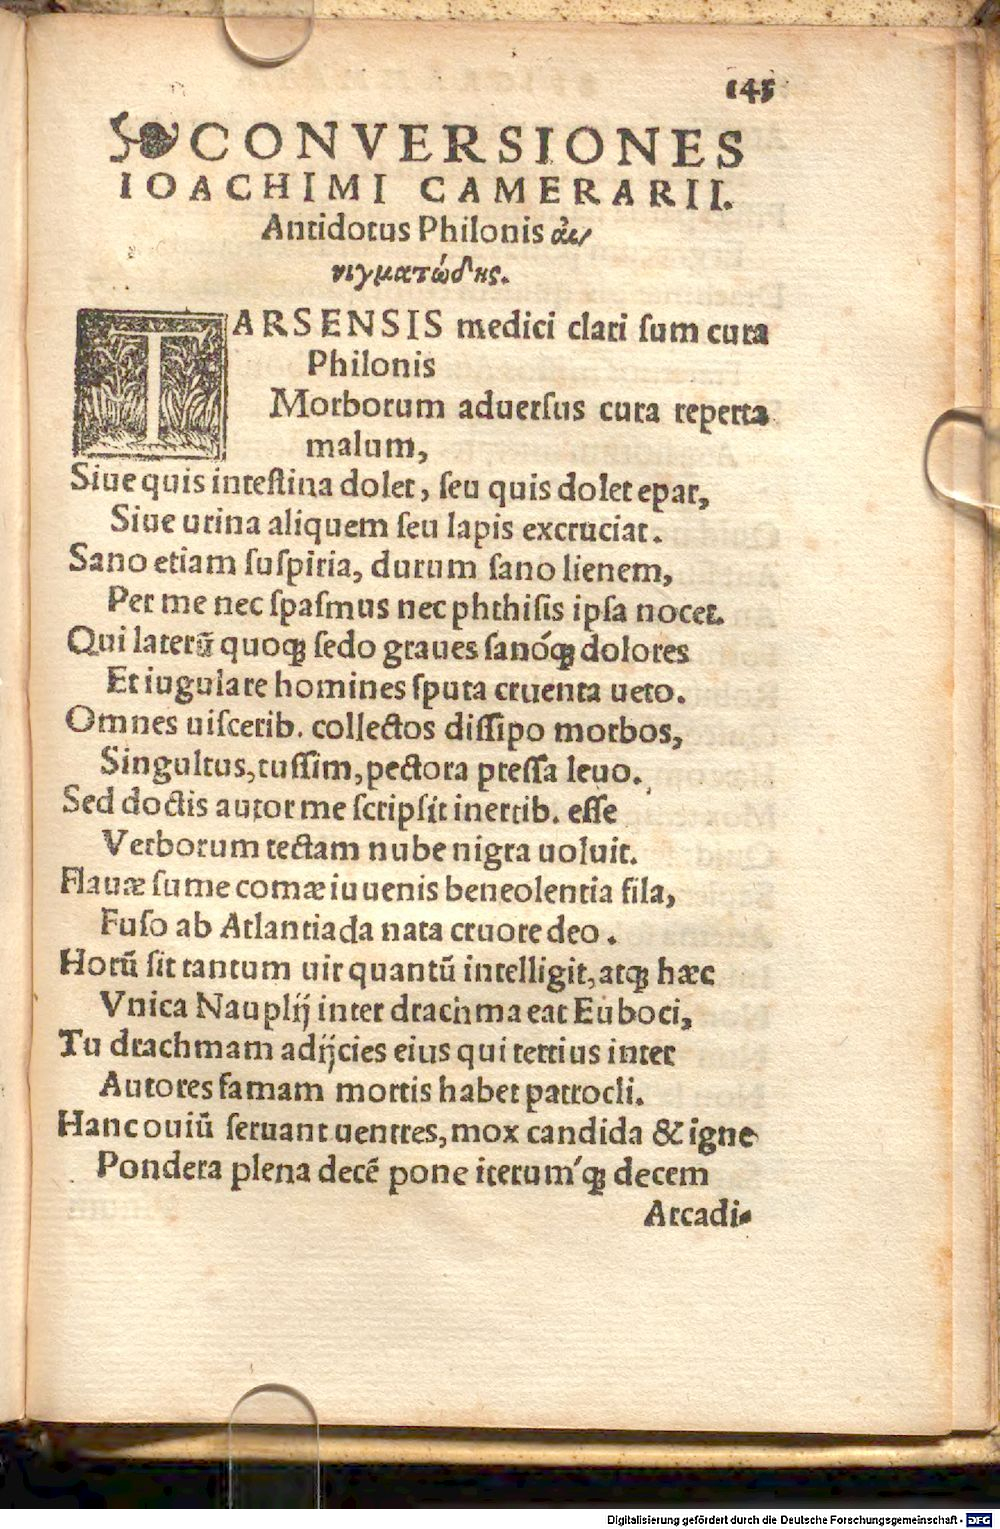 145
CONVERSIONES
IOACHIMI CAMERARII.
Antidotus Philonis αἰ/
νιγματώδης.
TARSENSIS medici clari sum cura
Philonis
Morborum aduersus cura reperta
malum,
Siue quis intestina dolet, seu quis dolet epar,
Siue urina aliquem seu lapis excruciat.
Sano etiam suspiria, durum sano lienem,
Per me nec spasmus nec phthisis ipsa nocet.
Qui laterū quoq; sedo graues sanóq; dolores
Et iugulare homines sputa cruenta ueto.
Omnes uiscerib. collectos dissipo morbos,
Singultus, tussim, pectora pressa leuo.
Sed doctis autor me scripsit inertib. esse
Verborum tectam nube nigra uoluit.
Flauæ sume comæ iuuenis beneolentia fila,
Fuso ab Atlantiada nata cruore deo.
Horū sit tantum uir quantū intelligit, atq; hæc
Vnica Nauplij inter drachma eat Euboci,
Tu drachmam adijcies eius qui tertius inter
Autores famam mortis habet patrocli.
Hanc ouiū seruant uentres, mox candida & igne
Pondera plena decē pone iterum'q; decem
Arcadi-
Digitalisierung gefördert durch die Deutsche Forschungsgemeinschaft - DFG